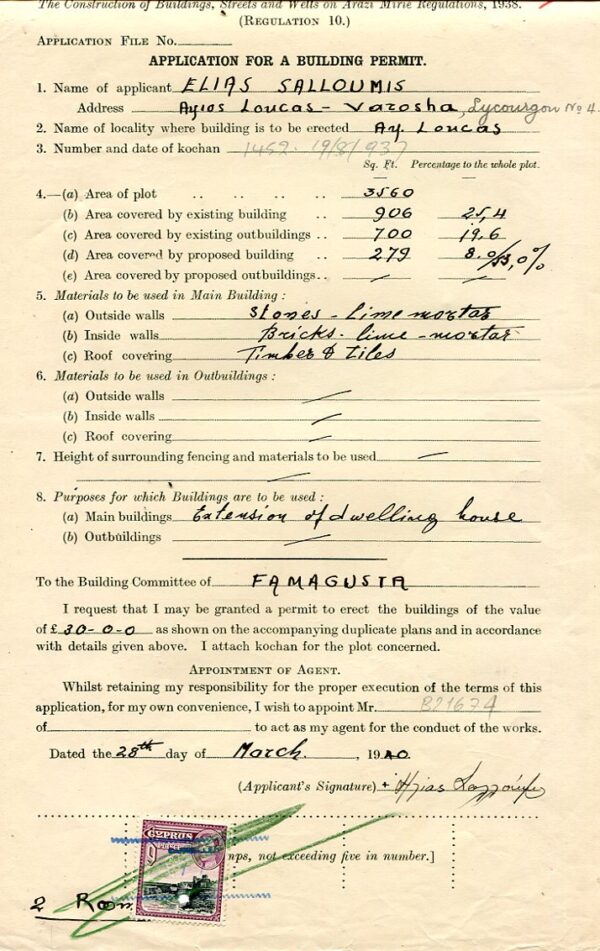 The Construction of Buildings, Streets and Wells on Arazi Mirié Regulations, 1938.
(REGULATION 10.)
APPLICATION FILE No.
APPLICATION FOR A BUILDING PERMIT.
1. Name of applicant ELIAS SALLOUMIS
Address Ayios Loucas - Varosha, Lycourgou No 4.
2. Name of locality where building is to be erected Ay. Loucas
3. Number and date of kochan 1452. 19/8/937
Sq. Ft. Percentage to the whole plot.
4.—(a) Area of plot .. .. .. .. 3560
(b) Area covered by existing building .. 906 25,4
(c) Area covered by existing outbuildings .. 700 19.6
(d) Area covered by proposed building .. 279 8.0/53,0%
(e) Area covered by proposed outbuildings.. — —
5. Materials to be used in Main Building :
(a) Outside walls Stones - Lime mortar
(b) Inside walls Bricks - lime - mortar
(c) Roof covering Timber & Tiles
6. Materials to be used in Outbuildings :
(a) Outside walls —
(b) Inside walls —
(c) Roof covering —
7. Height of surrounding fencing and materials to be used —
—
8. Purposes for which Buildings are to be used :
(a) Main buildings Extension of dwelling house
(b) Outbuildings —
To the Building Committee of FAMAGUSTA
I request that I may be granted a permit to erect the buildings of the value
of £ 30-0-0 as shown on the accompanying duplicate plans and in accordance
with details given above. I attach kochan for the plot concerned.
APPOINTMENT OF AGENT.
Whilst retaining my responsibility for the proper execution of the terms of this
application, for my own convenience, I wish to appoint Mr. B21674
of to act as my agent for the conduct of the works.
Dated the 28th day of March, 1940.
(Applicant's Signature)
CYPRUS
nps, not exceeding five in number.]
2 Room